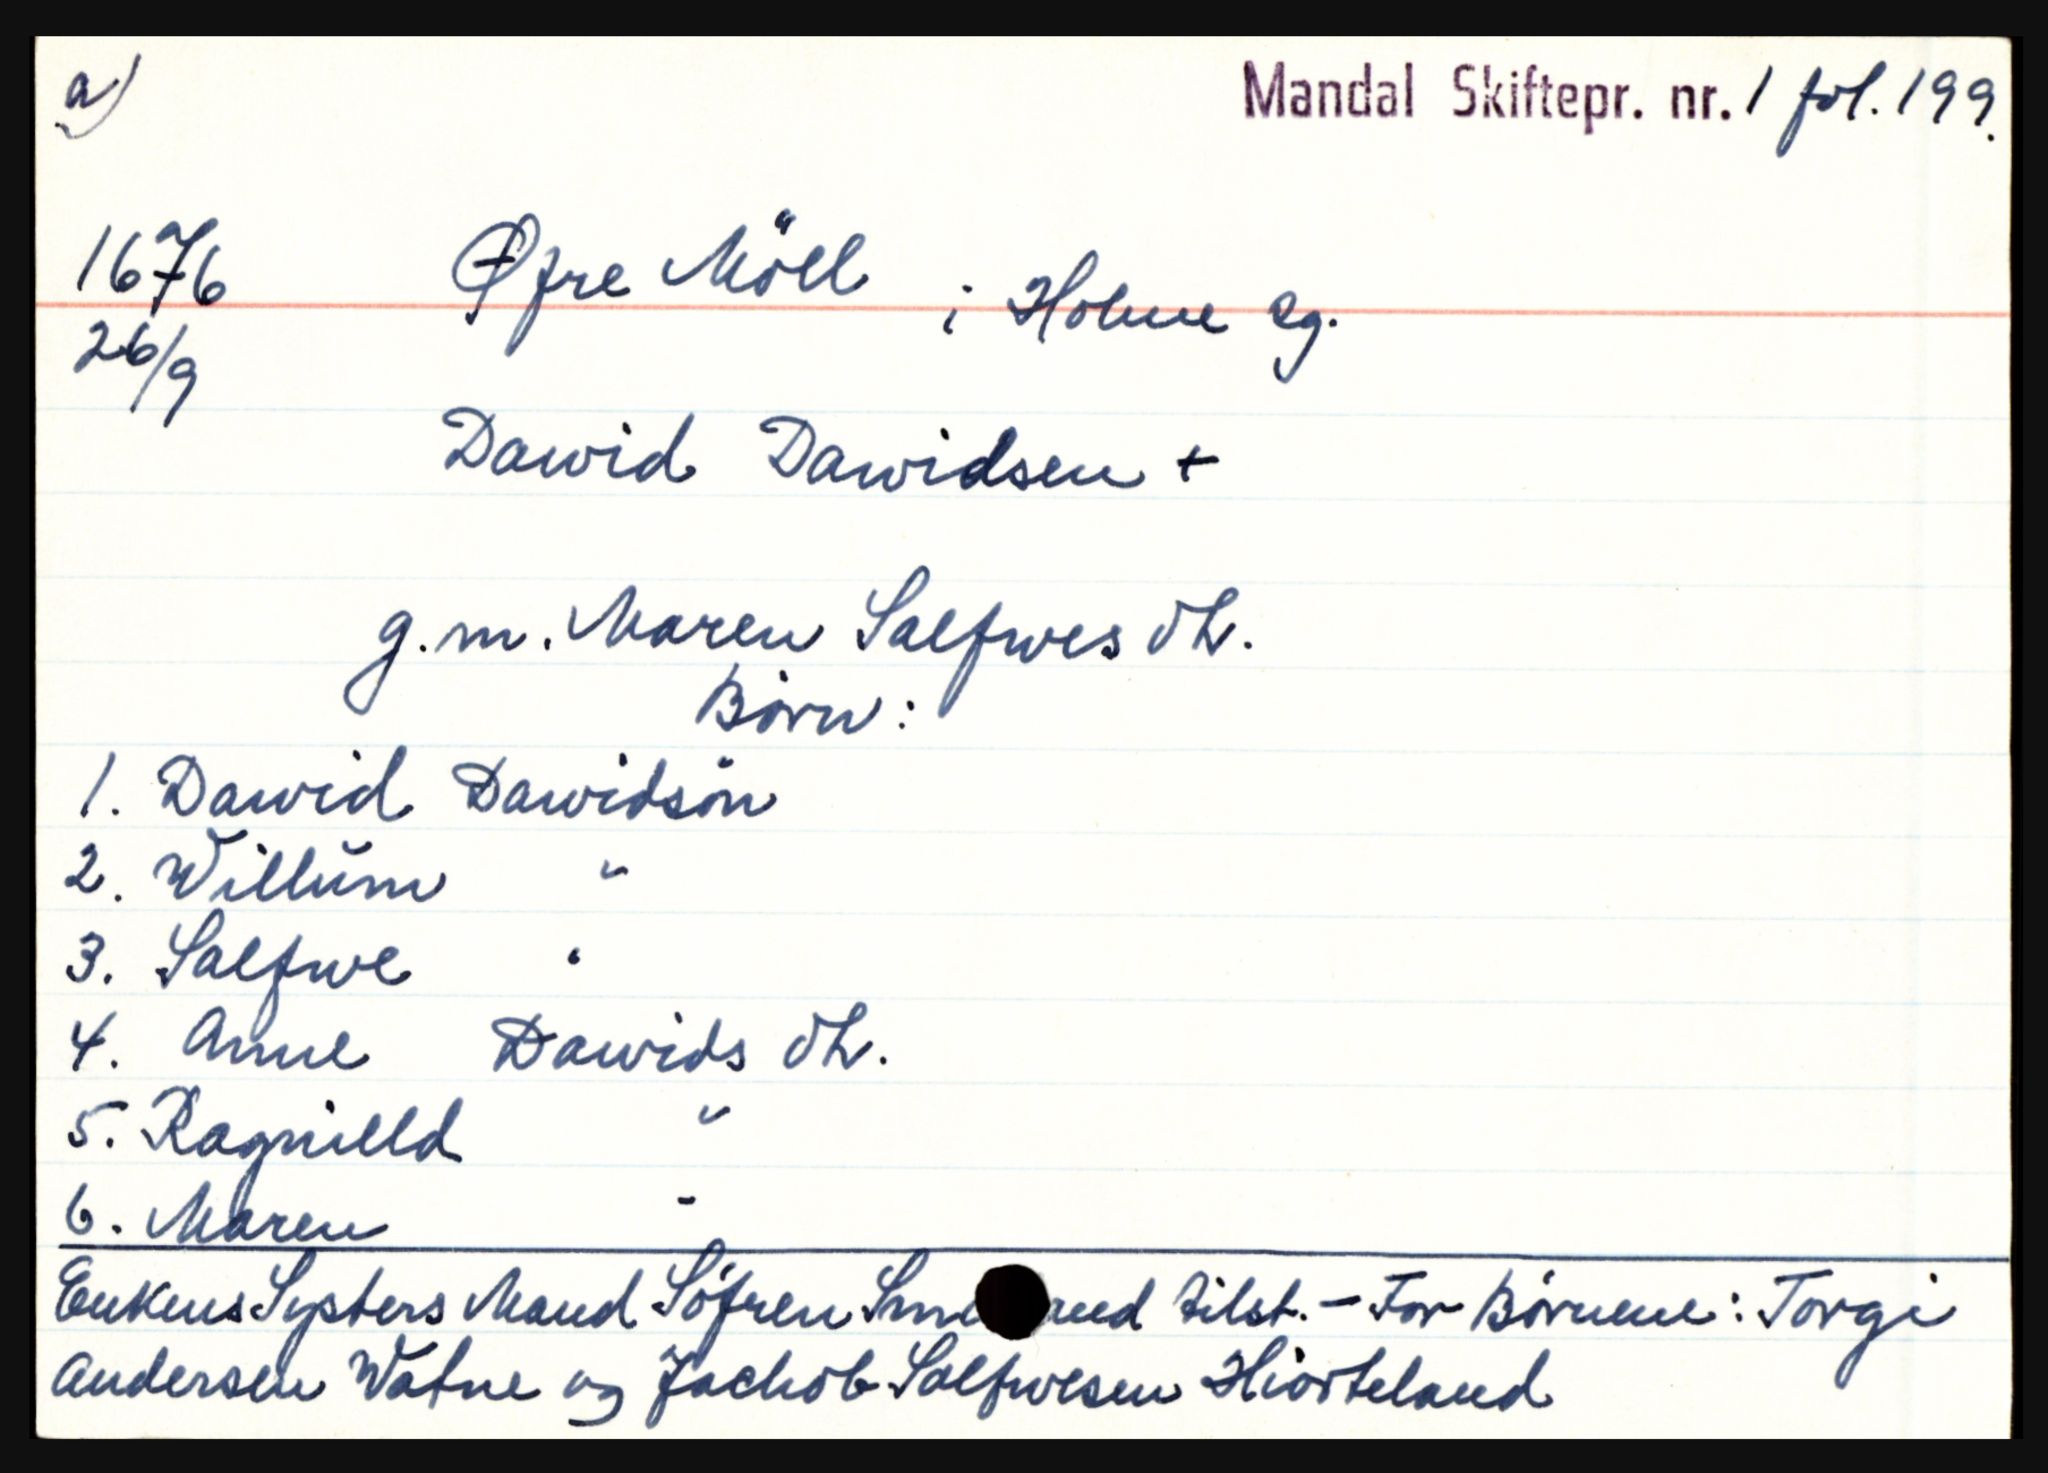 a) Mandal Skiftepr. nr. 1 fol. 199.
1676 Øfre Möll i Holme Sg.
26/9
Dawid Dawidsen +
g.m. Maren Salfwes dt.
Børn:
1. Dawid Dawidsön
2. Willŭm "
3. Salfwe "
4. Anne Dawids dt.
5. Ragnilld "
6. Maren "
Enkens Systers Mand Söfren and tilst. - For Börnene: Torgi
Andersen Watne og Jachob Salfwesen Hiorteland